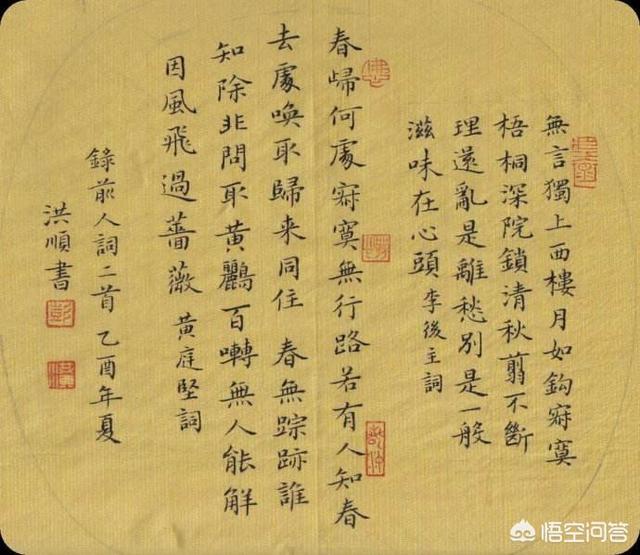 無言獨上西樓月如鈎寂寞
梧桐深院鎖清秋翦不斷
理還亂是離愁別是一般
滋味在心頭 李後主詞
春歸何處寂寞無行路若有人知春
去處喚取歸来同住 春無踪跡誰
知除非問取黃鸝百囀無人能解
因風飛過薔薇 黃庭堅詞
錄前人詞二首 乙酉年夏
洪順書
悟空问答